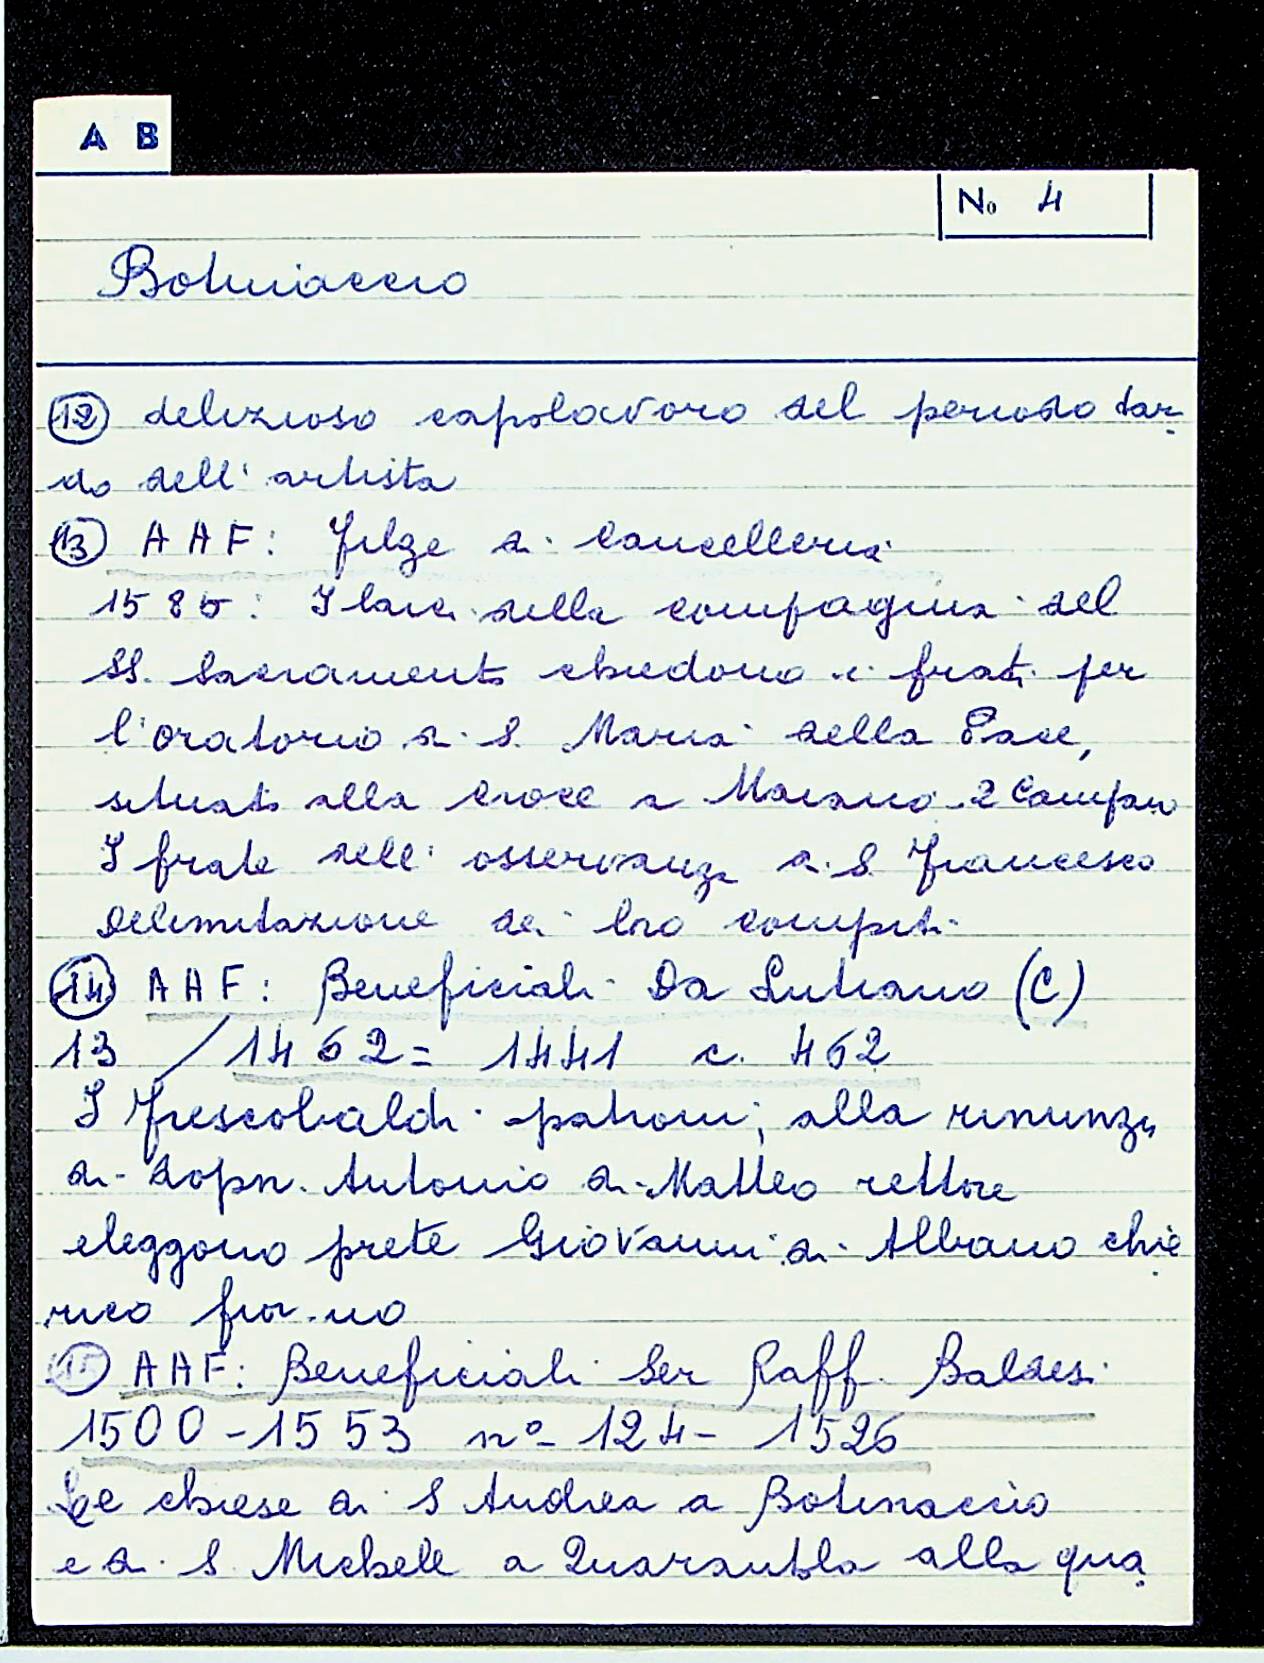 A B
No 4
Botinaccio
12 delizioso capolavoro del periodo tar
do dell'artista
13 AAF: Filze di Cancelleria
1585: I laici della compagnia del
SS. Sacramento chiedono i frati per
l'oratorio di S. Maria della Pace,
situato alla Croce a Maiano 2 Campo
I frate dell'osservanza di S. Francesco
Delimitazione dei loro compiti
14 AAF: Beneficiali Da Lutiano (C)
13 / 1462 = 1441 c. 462
I Frescobaldi patroni, alla rinunzia
di Antonio di Matteo rettore
eleggono prete Giovanni di Albano chie
rico fior.no
15 AAF: Beneficiali Ser Raff. Baldesi
1500-1553 n° 124- 1526
Le chiese di S Andrea a Botinaccio
e di S. Michele a Quarantola alla qua